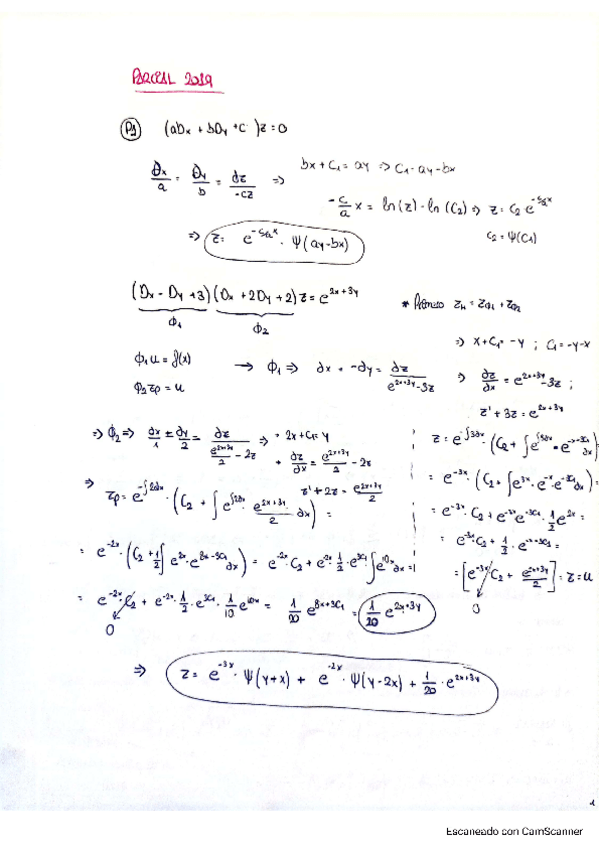 PARCIAL 2019
P1 (aDx + bDy + c )z = 0
∂x/a = ∂y/b = ∂z/-cz ⇒ bx + C1 = ay ⇒ C1 = ay - bx
-c/a x = ln(z) - ln(C2) ⇒ z = C2 e^{-c/a x}
⇒ z = e^{-c/a x} · Ψ(ay-bx) C2 = Ψ(C1)
(Dx - Dy + 3)(Dx + 2Dy + 2)z = e^{2x+3y} * Primero zH = zΦ1 + zΦ2
Φ1 Φ2 ⇒ x + C1 = -y ; C1 = -y-x
Φ1 u = f(x) → Φ1 ⇒ ∂x = -∂y = ∂z/(e^{2x+3y}-3z) ⇒ ∂z/∂x = e^{2x+3y} - 3z ;
Φ2 zp = u z' + 3z = e^{2x+3y}
⇒ Φ2 ⇒ ∂x/1 = ∂y/2 = ∂z/(e^{2x+3y}/2 - 2z) ⇒ · 2x + C1 = y
· ∂z/∂x = e^{2x+3y}/2 - 2z
z' + 2z = e^{2x+3y}/2
⇒ zp = e^{-∫2∂x} · (C2 + ∫e^{∫2∂x} · e^{2x+3y}/2 ∂x) =
= e^{-2x} · (C2 + 1/2 ∫e^{2x} · e^{8x+3C1} ∂x) = e^{-2x} · C2 + e^{-2x} · 1/2 · e^{3C1} ∫e^{10x} ∂x =
= e^{-2x} · C2 + e^{-2x} · 1/2 · e^{3C1} · 1/10 e^{10x} = 1/20 e^{8x+3C1} = 1/20 e^{2x+3y}
0
z = e^{-∫3∂x} · (C2 + ∫e^{∫3∂x} · e^{-x-3C1} ∂x) =
= e^{-3x} · (C2 + ∫e^{3x} · e^{-x} · e^{-3C1} ∂x) =
= e^{-3x} · C2 + e^{-3x} e^{-3C1} · 1/2 e^{2x} =
= [e^{-3x} C2 + e^{2x+3y}/2] = z = u
0
⇒ z = e^{-3x} · Ψ(y+x) + e^{-2x} · Ψ(y-2x) + 1/20 · e^{2x+3y}
1
Escaneado con CamScanner